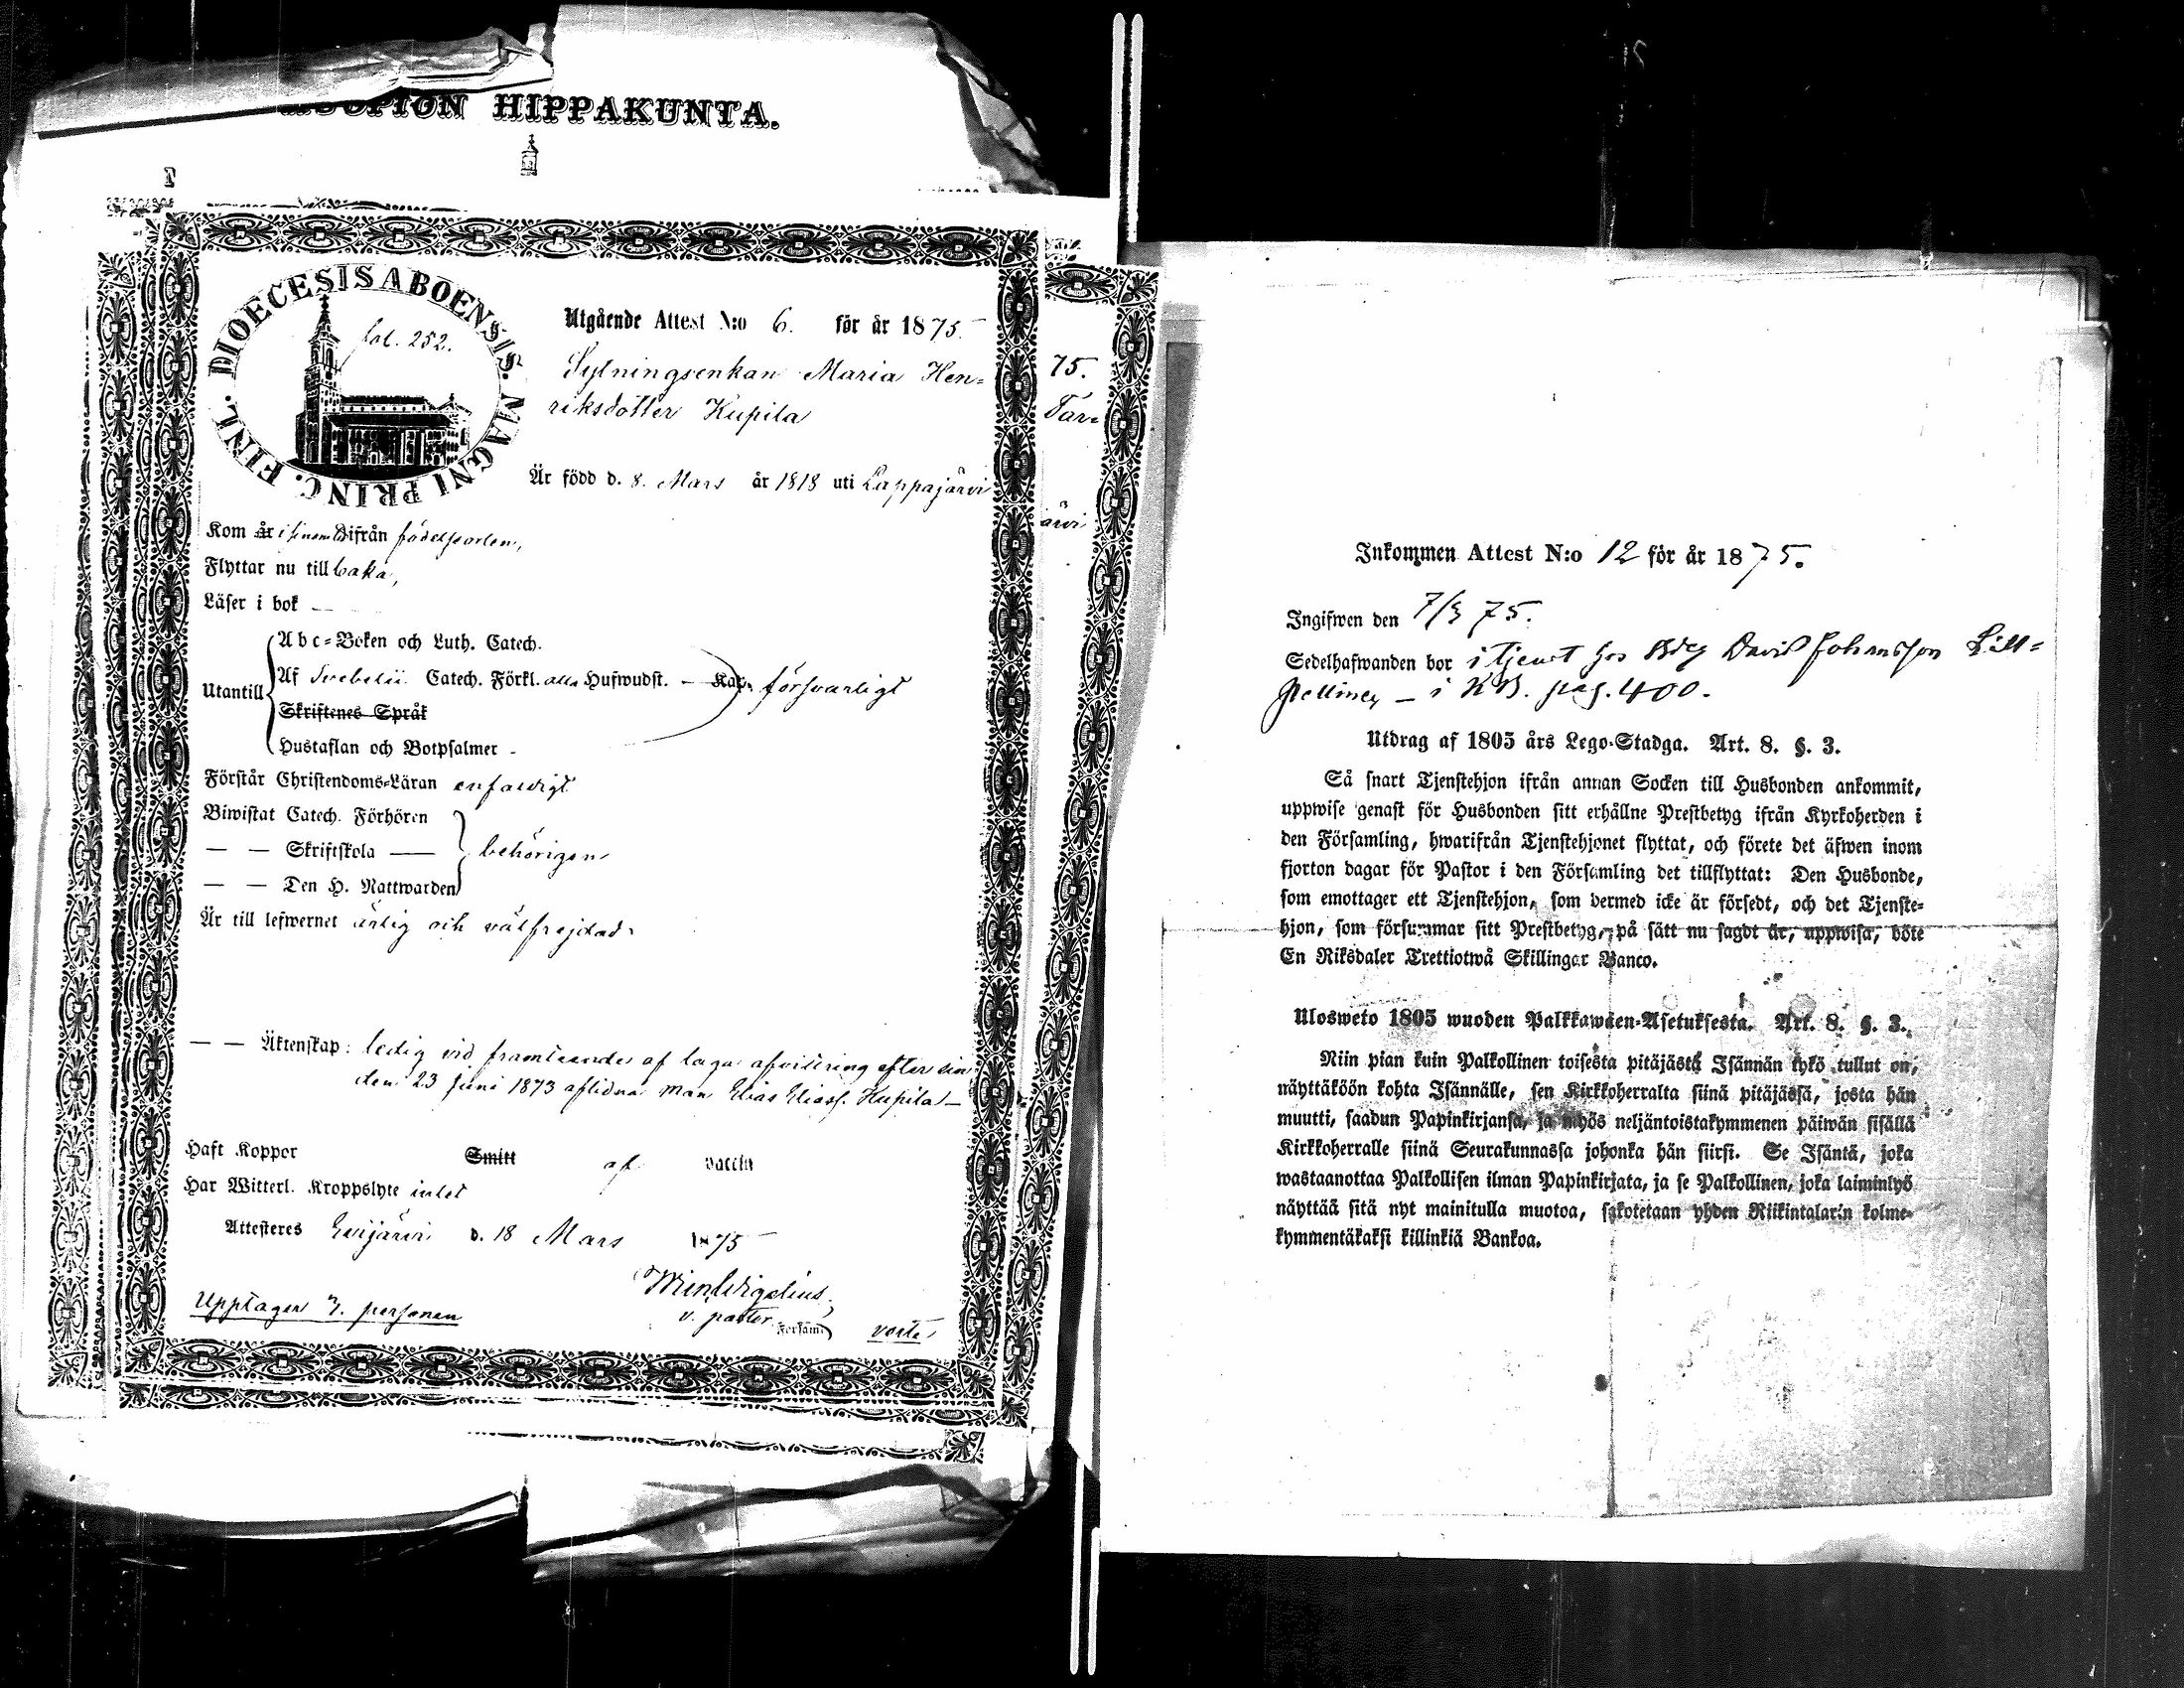 KUOPION HIPPAKUNTA.
DIOECESIS ABOENSIS. MAGNI PRINC. FINL.
fol. 252.
Utgående Attest N:o 6. för år 1875.
Sytningsenkan Maria Hen=
riksdotter Kupila
Är född d. 8. Mars år 1818 uti Lappajärvi
Kom år ifrån födelseorten,
Flyttar nu till baka,
Läser i bok —
Utantill
Abc=Boken och Luth. Catech.
Af Svebelii Catech. Förkl. alla Hufwudst. — Kap. försvarligt
Skriftenes Språk
Hustaflan och Botpsalmer -
Förstår Christendoms=Läran enfaldigt
Biwistat Catech. Förhören
— — Skriftskola — behörigen
— — Den H. Nattwarden
Är till lefwernet ärlig och välfrejdad.
— — Äktenskap: ledig vid framteende af laga afvittring efter sin
den 23 juni 1873 aflidna man Elias Eliass. Kupila —
Haft Koppor Smitt af vaccin
Har Witterl. Kroppslyte intet
Attesteres Evijärvi d. 18 Mars 1875
v. pastor.
Upptager 1. personen
Församl vorte
75.
Tar=
ärvi
Inkommen Attest N:o 12 för år 1875.
Ingifwen den 7/5 75.
Sedelhafwanden bor i tjenst hos Bdeg David Johansson Lill=
pelliney — i KB. pag. 400.
Utdrag af 1805 års Lego-Stadga. Art. 8. §. 3.
Så snart Tjenstehjon ifrån annan Socken till Husbonden ankommit,
uppwise genast för Husbonden sitt erhållne Prestbetyg ifrån Kyrkoherden i
den Församling, hwarifrån Tjenstehjonet flyttat, och förete det äfwen inom
fjorton dagar för Pastor i den Församling det tillflyttat: Den Husbonde,
som emottager ett Tjenstehjon, som dermed icke är försedt, och det Tjenste=
hjon, som försummar sitt Prestbetyg, på sätt nu sagdt är, uppwisa, böte
En Riksdaler Trettiotwå Skillingar Banco.
Ulosweto 1805 wuoden Palkkawäen-Asetuksesta. Art. 8. §. 3.
Niin pian kuin Palkollinen toisesta pitäjästä Isännän tykö tullut on,
näyttäköön kohta Isännälle, sen Kirkkoherralta siinä pitäjässä, josta hän
muutti, saadun Papinkirjansa, ja myös neljäntoistakymmenen päiwän sisällä
Kirkkoherralle siinä Seurakunnassa johonka hän siirsi. Se Isäntä, joka
wastaanottaa Palkollisen ilman Papinkirjata, ja se Palkollinen, joka laiminlyö
näyttää sitä nyt mainitulla muotoa, sakotetaan yhden Riikintalarin kolme-
kymmentäkaksi killinkiä Bankoa.